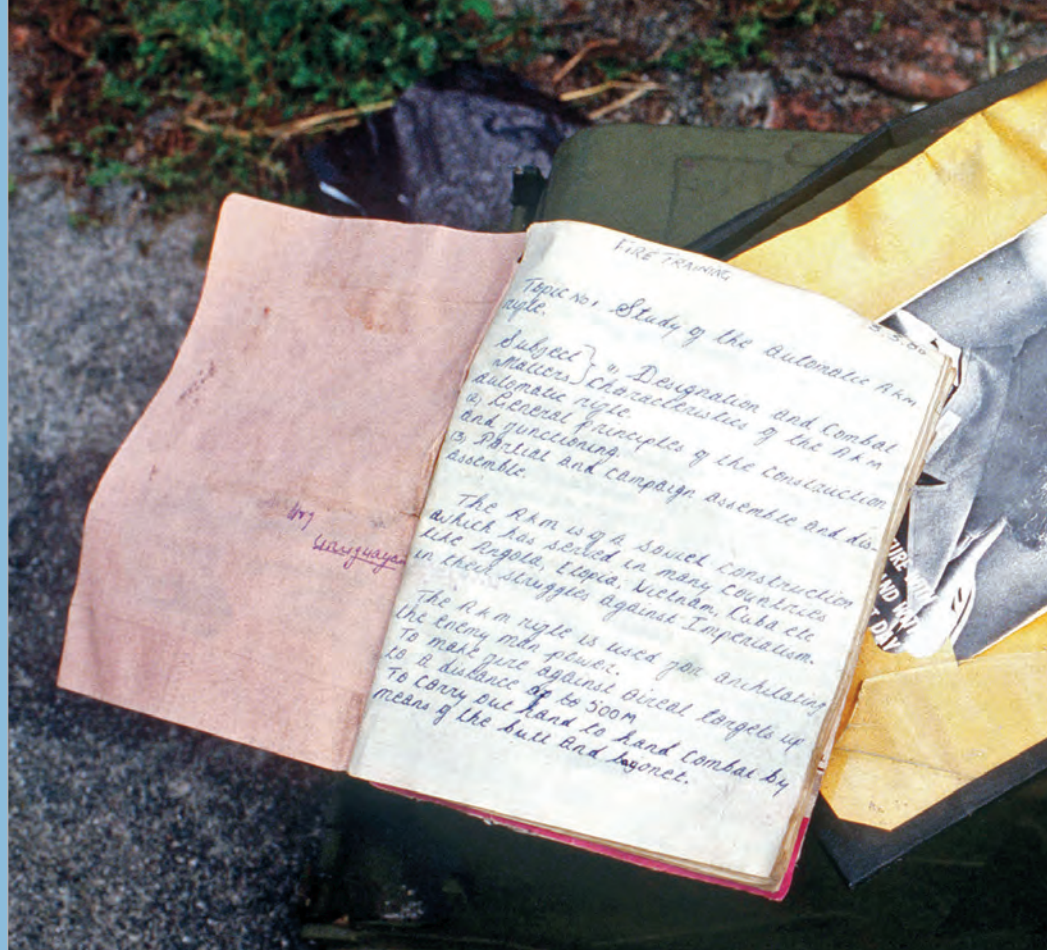 FIRE TRAINING
5.5.80
Topic No 1 Study of the automatic Akm
rifle.
Subject } (1) Designation and Combat
Matters } Characteristics of the AKM
automatic rifle.
(2) General principles of the construction
and functioning.
(3) Partial and campaign assemble and dis
assemble.
The Akm is of a Soviet construction
which has served in many countries
like Angola, Etopia, Vietnam, Cuba etc
in their struggles against Imperialism.
The Akm rifle is used for anihilating
the enemy man power.
To make fire against aireal targets up
to a distance of to 500m
To carry out hand to hand combat by
means of the butt and bayonet.